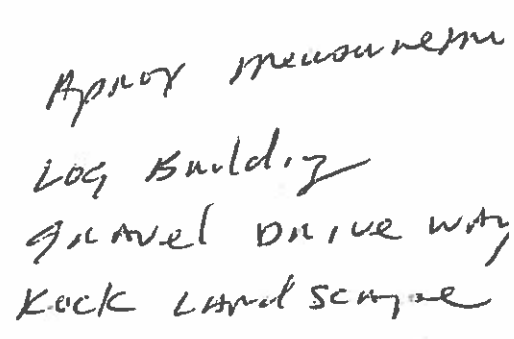 Aprox measurem
Log Building
Gravel Drive way
Rock Landscape